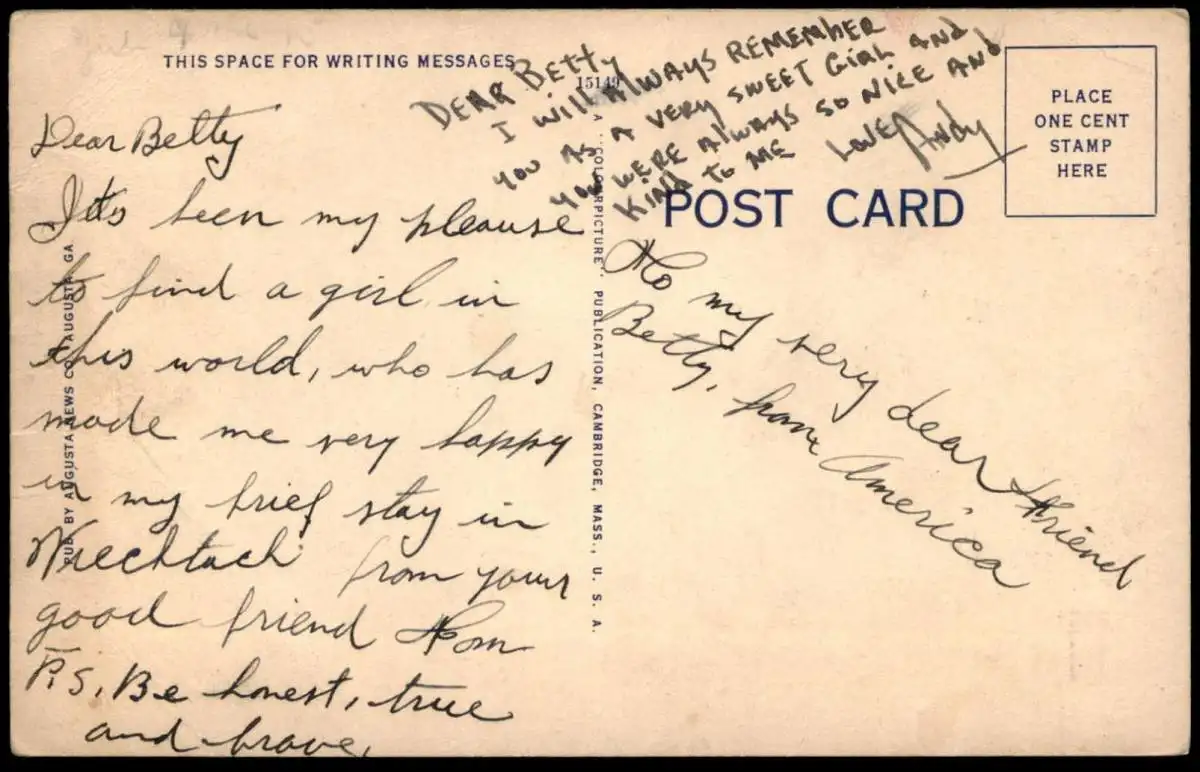 THIS SPACE FOR WRITING MESSAGES
Dear Betty
It's been my pleause
to find a girl in
this world, who has
made me very happy
in my brief stay in
from your
good friend Tom
P.S. Be honest, true
and brave.
DEAR BETTY
I WILL ALWAYS REMEMBER
YOU AS A VERY SWEET GIRL AND
YOU WERE ALWAYS SO NICE AND
KIND TO ME LOVE, ANDY
15149
PLACE
ONE CENT
STAMP
HERE
POST CARD
To my very dear friend
Betty, from America
PUB BY AUGUSTA NEWS CO., AUGUSTA, GA
A "COLOURPICTURE" PUBLICATION, CAMBRIDGE, MASS., U. S. A.